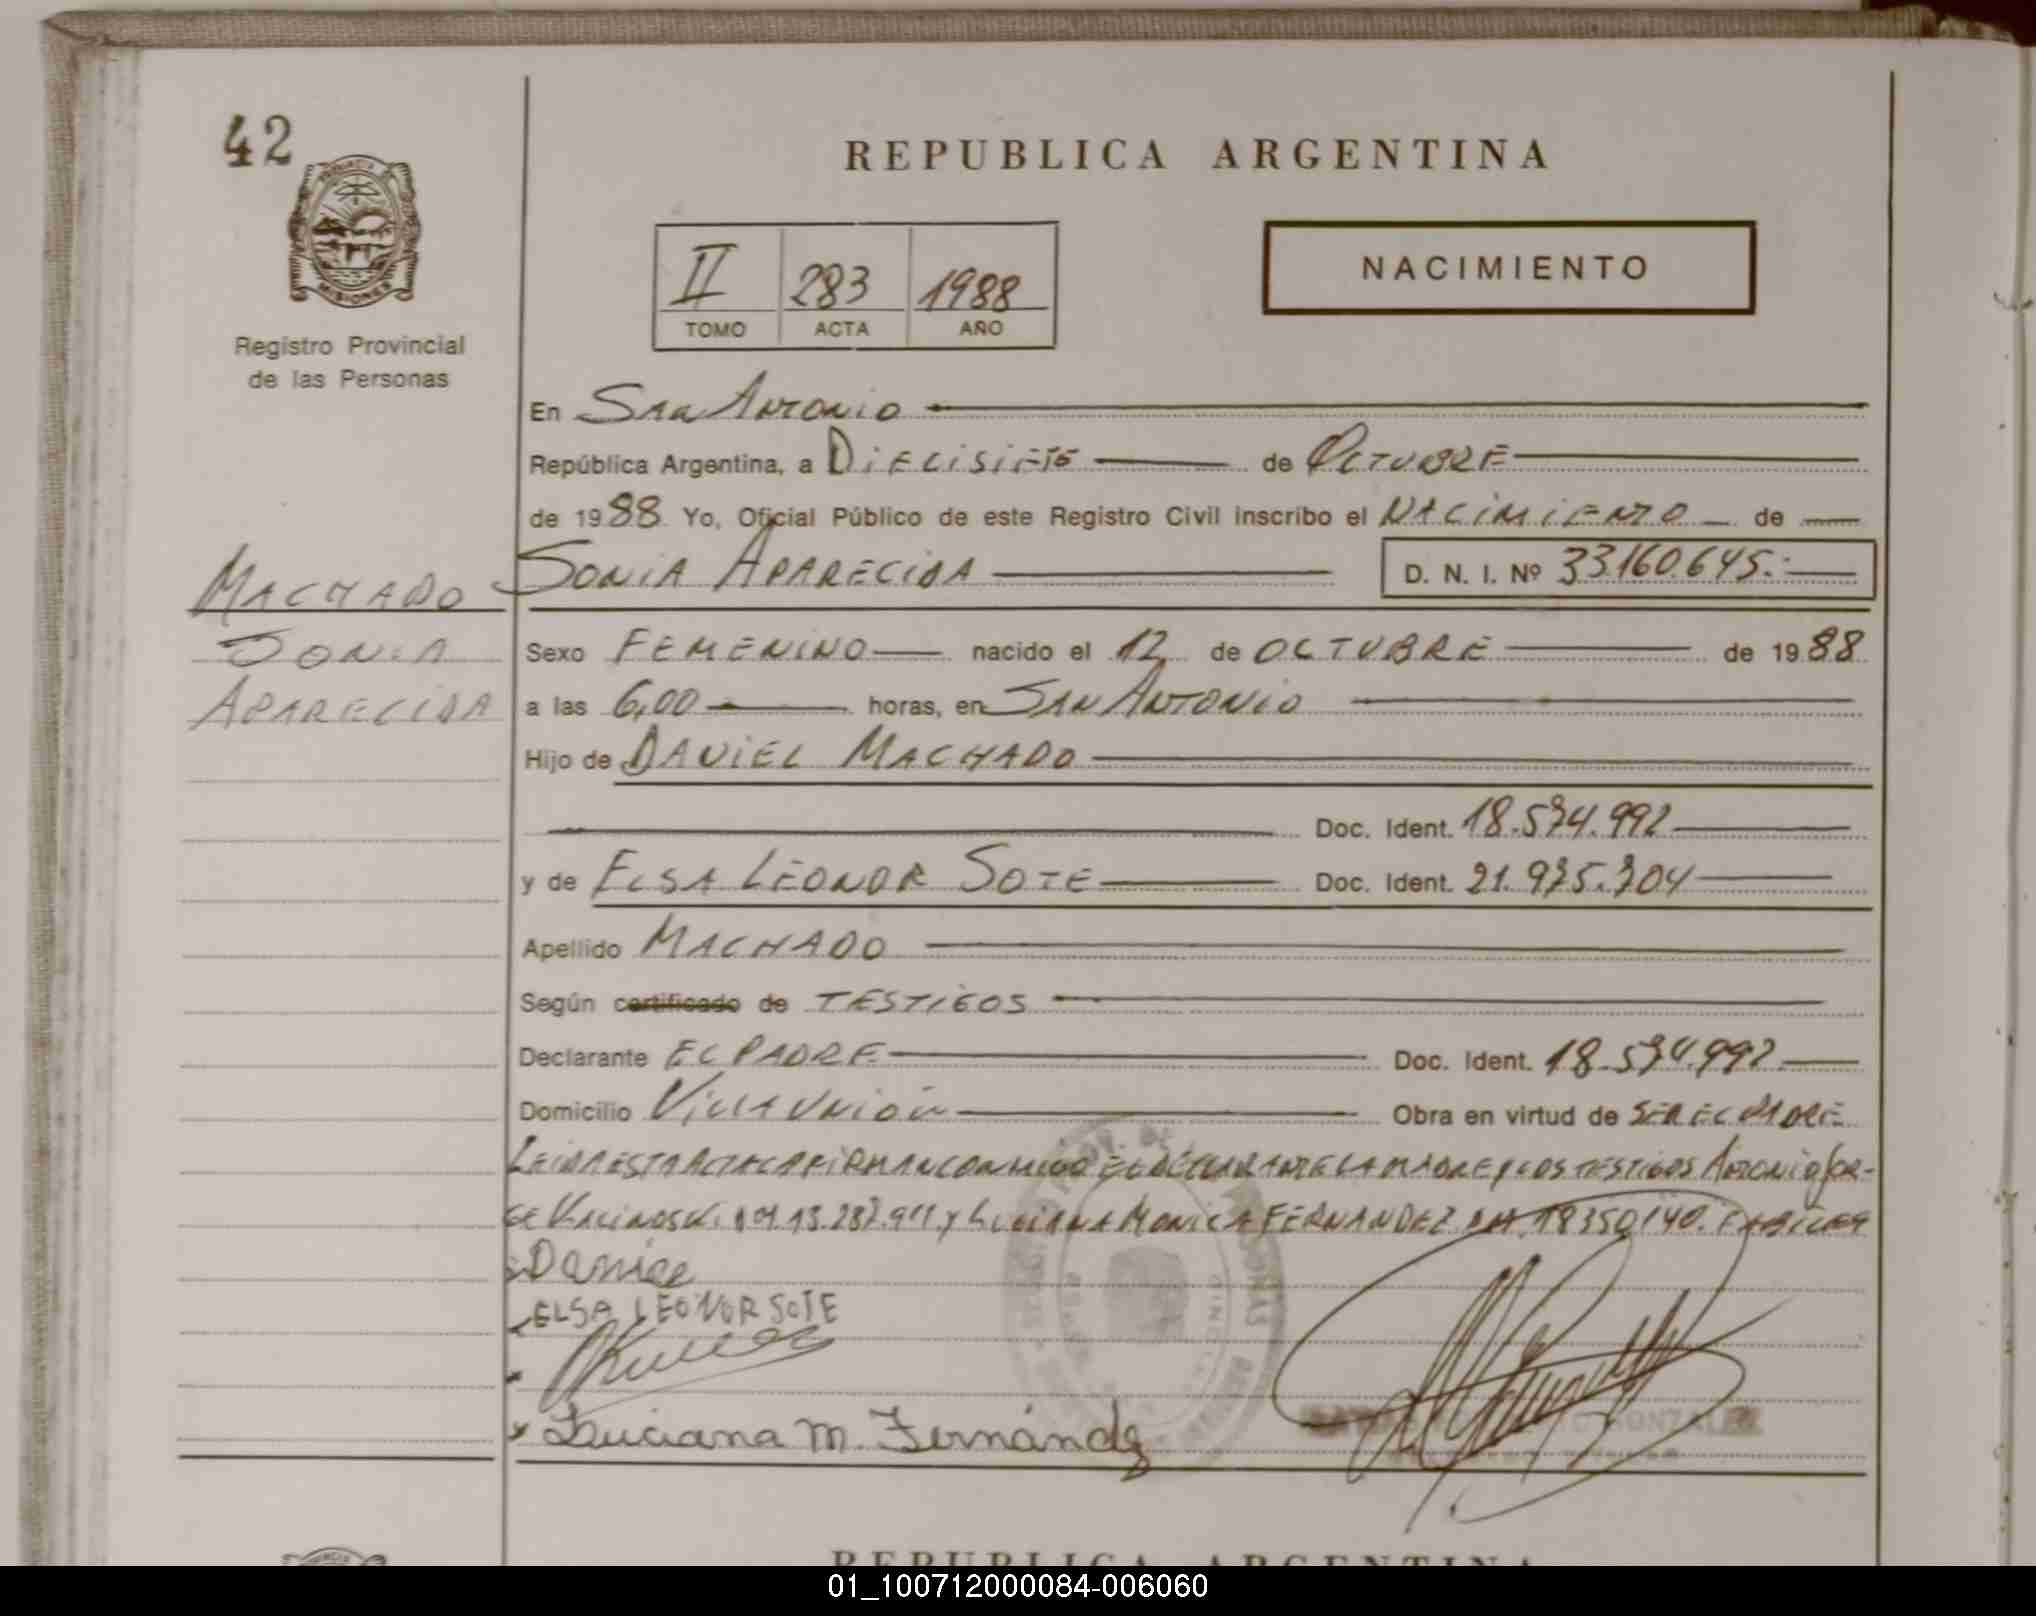 42
REPUBLICA ARGENTINA
PROVINCIA DE
MISIONES
Registro Provincial
de las Personas
II 283 1988
TOMO ACTA AÑO
NACIMIENTO
En San Antonio
República Argentina, a Diecisiete de Octubre
de 1988 Yo, Oficial Público de este Registro Civil inscribo el NACIMIENTO de
MACHADO
SONIA
APARECIDA
SONIA APARECIDA D. N. I. Nº 33.160.645.-
Sexo FEMENINO nacido el 12 de OCTUBRE de 1988
a las 6,00 horas, en SAN ANTONIO
Hijo de DANIEL MACHADO
Doc. Ident. 18.574.992
y de ELSA LEONOR SOTE Doc. Ident. 21.975.304
Apellido MACHADO
Según certificado de TESTIGOS
Declarante EL PADRE Doc. Ident. 18.574.992
Domicilio VILLA UNIÓN Obra en virtud de SER EL PADRE
LEIDA ESTA ACTA LA FIRMAN CONMIGO EL DECLARANTE LA MADRE y LOS TESTIGOS ANTONIO JOR-
GE y LUCIANA MONICA FERNANDEZ 18350140.
Daniel
ELSA LEONOR SOTE
Luciana M. Fernández
GONZALEZ
REPUBLICA ARGENTINA
01_100712000084-006060